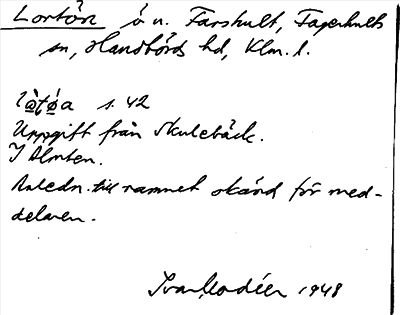 Lortön ö n. Farshult, Fagerhults
sn, Handbörds hd, Klm. l.
s. 42
Uppgift från Skulebäck.
I Almten.
Anledn. till namnet okänd för med-
delaren.
Ivar Modéer 1948